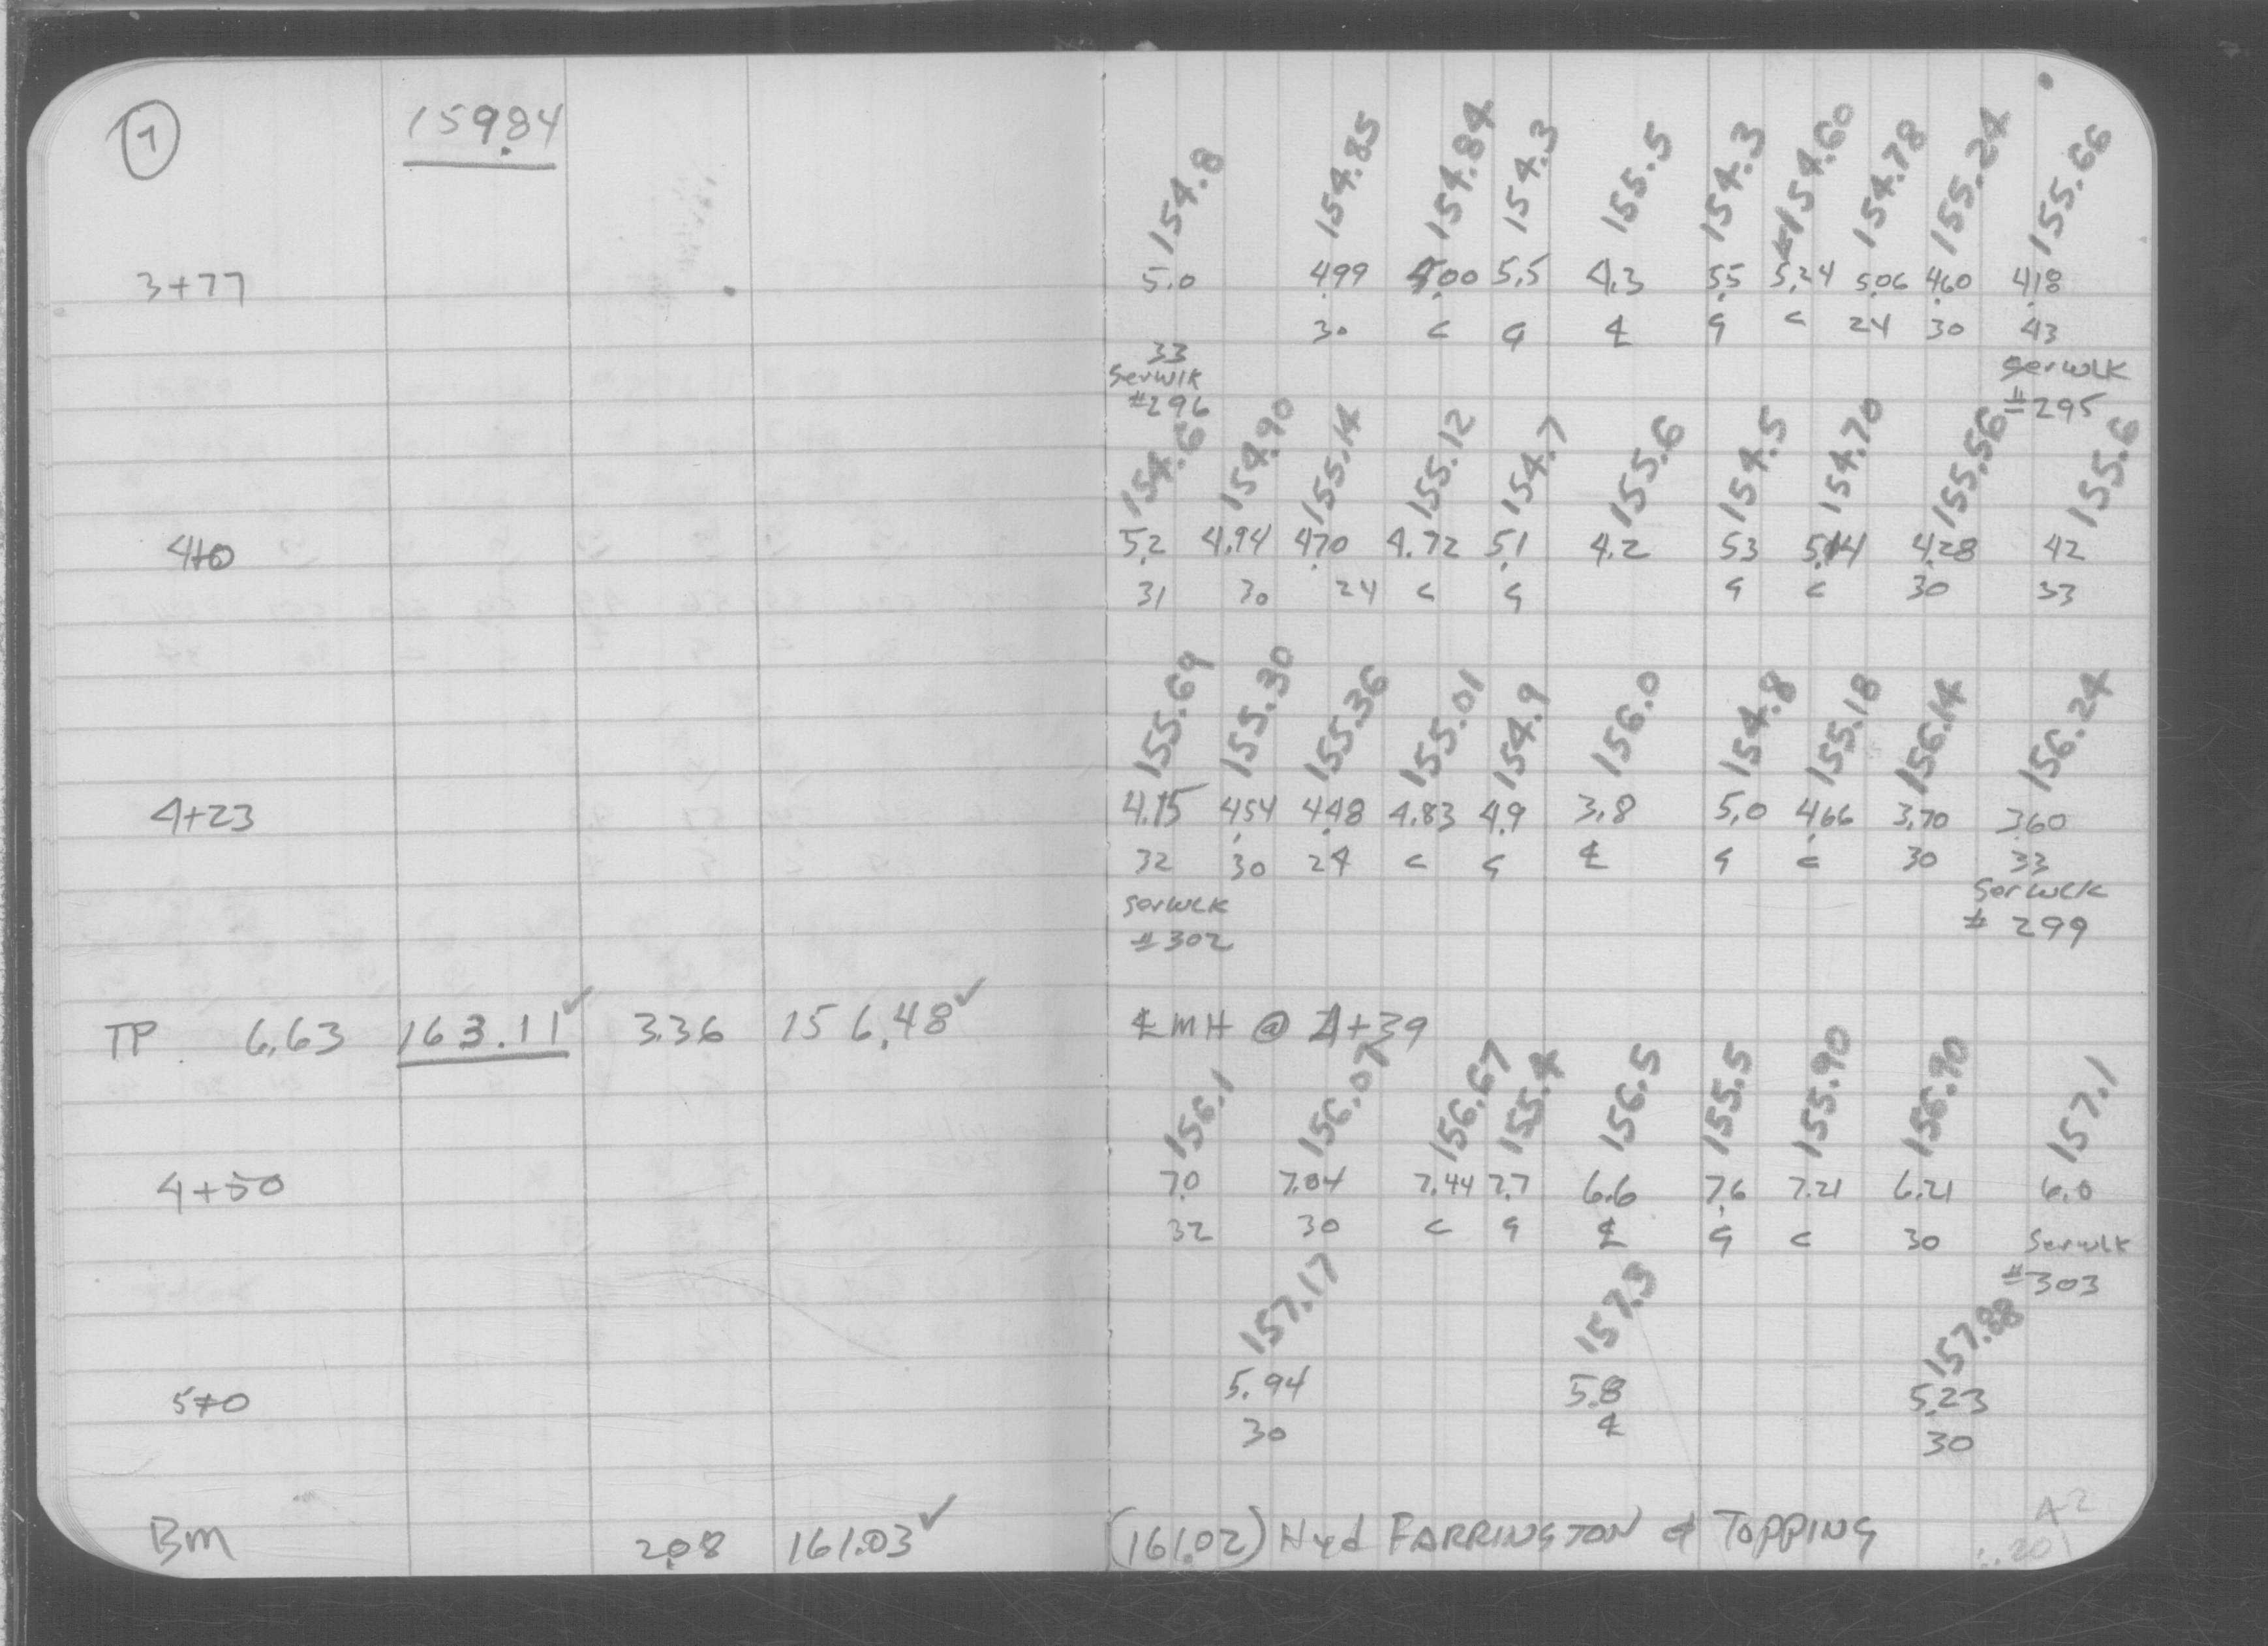 1 159.84
154.8 154.85 154.84 154.3 155.5 154.3 154.60 154.78 155.24 155.66
3+77 5.0 4.99 5.00 5.5 4.3 5.5 5.24 5.06 4.60 4.18
30 C G ℄ G C 24 30 43
33
Serwlk Serwlk
#296 #295
154.6 154.90 155.14 155.12 154.7 155.6 154.5 154.70 155.56 155.6
4+0 5.2 4.94 4.70 4.72 5.1 4.2 5.3 5.14 4.28 4.2
31 30 24 C G G C 30 33
155.69 155.30 155.36 155.01 154.9 156.0 154.8 155.18 156.14 156.24
4+23 4.15 4.54 4.48 4.83 4.9 3.8 5.0 4.66 3.70 3.60
32 30 24 C G ℄ G C 30 33
Serwlk Serwlk
#302 #299
TP 6.63 163.11✓ 3.36 156.48✓ ℄ MH @ 4+39
156.1 156.07 156.67 155.4 156.5 155.5 155.90 156.90 157.1
4+50 7.0 7.04 7.44 7.7 6.6 7.6 7.21 6.21 6.0
32 30 C G ℄ G C 30 Serwlk
#303
157.17 157.3 157.88
5+0 5.94 5.8 5.23
30 ℄ 30
BM 2.08 161.03✓ (161.02) Hyd FARRINGTON & TOPPING